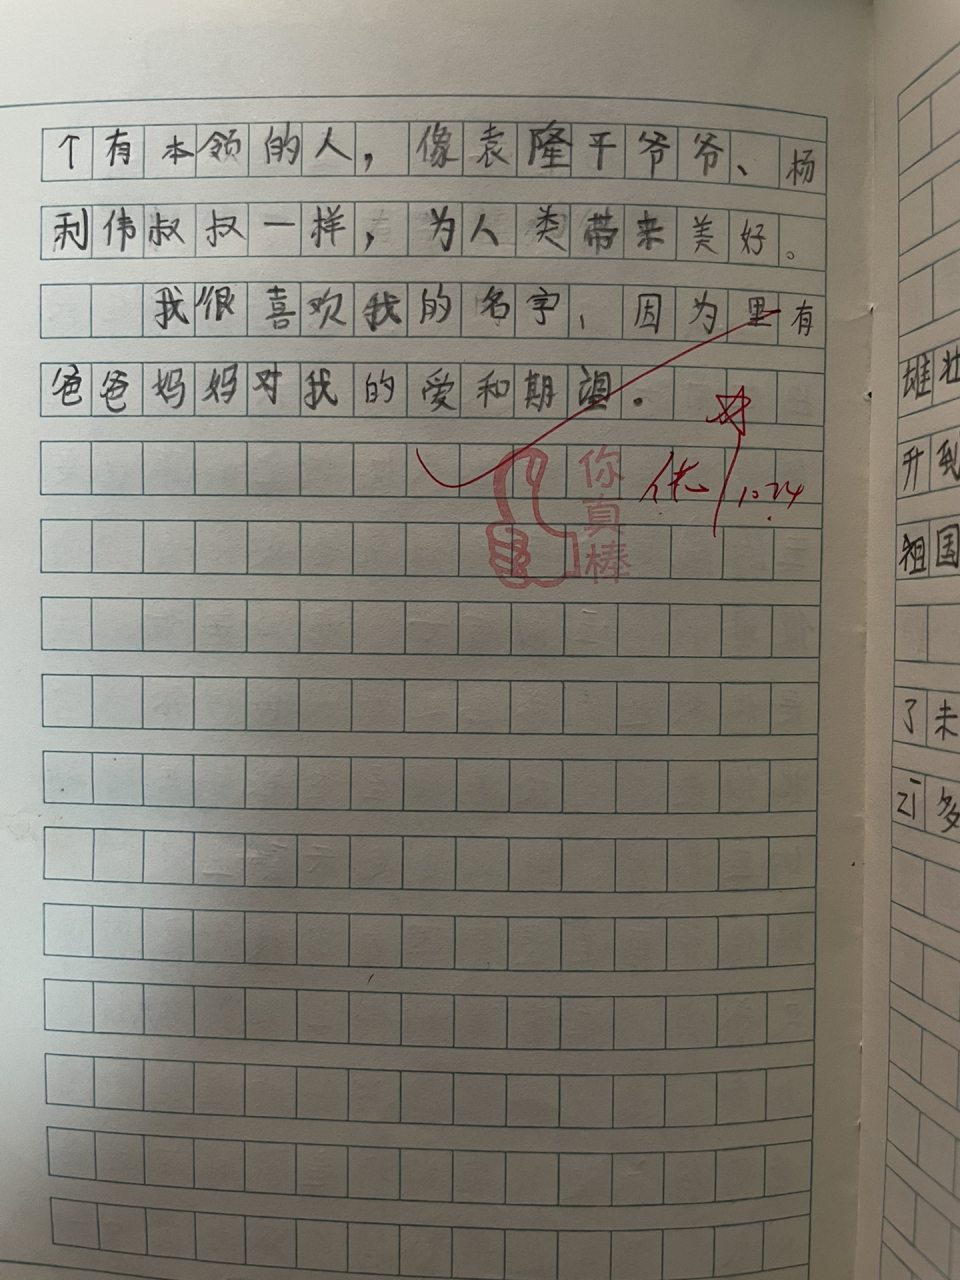 个有本领的人，像袁隆平爷爷、杨
利伟叔叔一样，为人类带来美好。
我很喜欢我的名字，因为里有
爸爸妈妈对我的爱和期望.
你真棒
优
10.24
雄壮
升到
祖国
了未
多